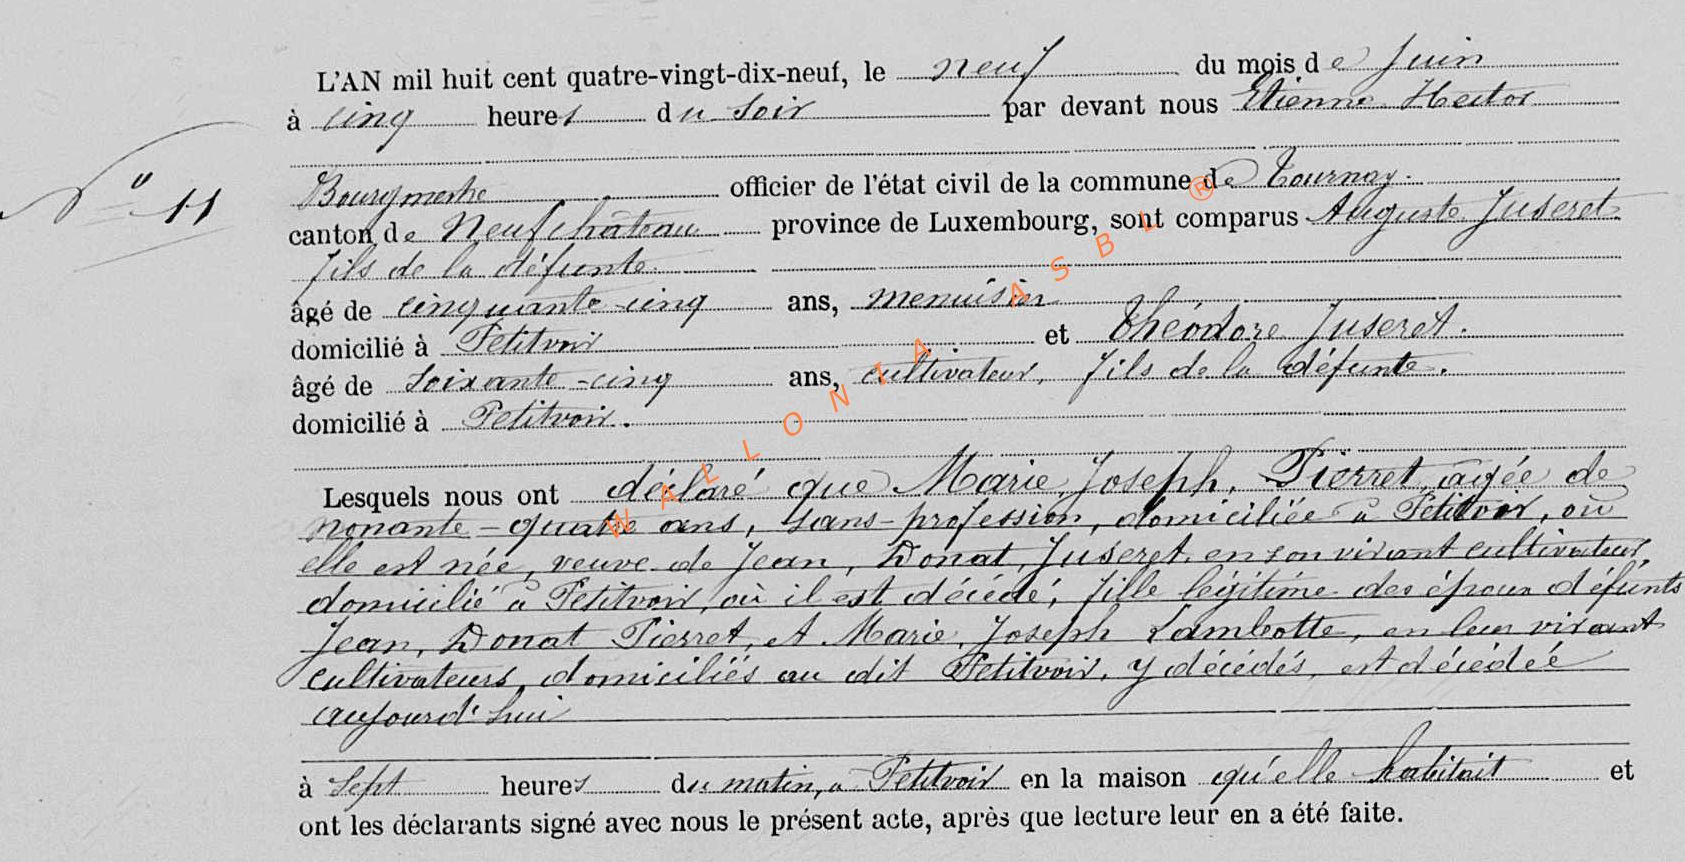 L'AN mil huit cent quatre-vingt-dix-neuf, le neuf du mois de Juin
à cinq heures du soir par devant nous Etienne Hector
N° 11
Bourgmestre officier de l'état civil de la commune de Tournay.
canton de Neufchateau province de Luxembourg, sont comparus Auguste Juseret
fils de la défunte.
âgé de cinquante-cinq ans, menuisier
domicilié à Petitvoir et Théodore Juseret.
âgé de soixante-cinq ans, cultivateur, fils de la défunte.
domicilié à Petitvoir.
Lesquels nous ont déclaré que Marie, Joseph, Pierret, agée de
nonante-quatre ans, sans-profession, domiciliée à Petitvoir, où
elle est née, veuve de Jean, Donat, Juseret, en son vivant cultivateur,
domicilié à Petitvoir, où il est décédé; fille légitime des époux défunts
Jean, Donat Pierret, et Marie, Joseph Lambotte, en leur vivant
cultivateurs, domiciliés au dit Petitvoir, y décédés, est décédée
aujourd'hui
à sept heures du matin, à Petitvoir en la maison qu'elle habitait et
ont les déclarants signé avec nous le présent acte, après que lecture leur en a été faite.
WALLONIA ASBL ®